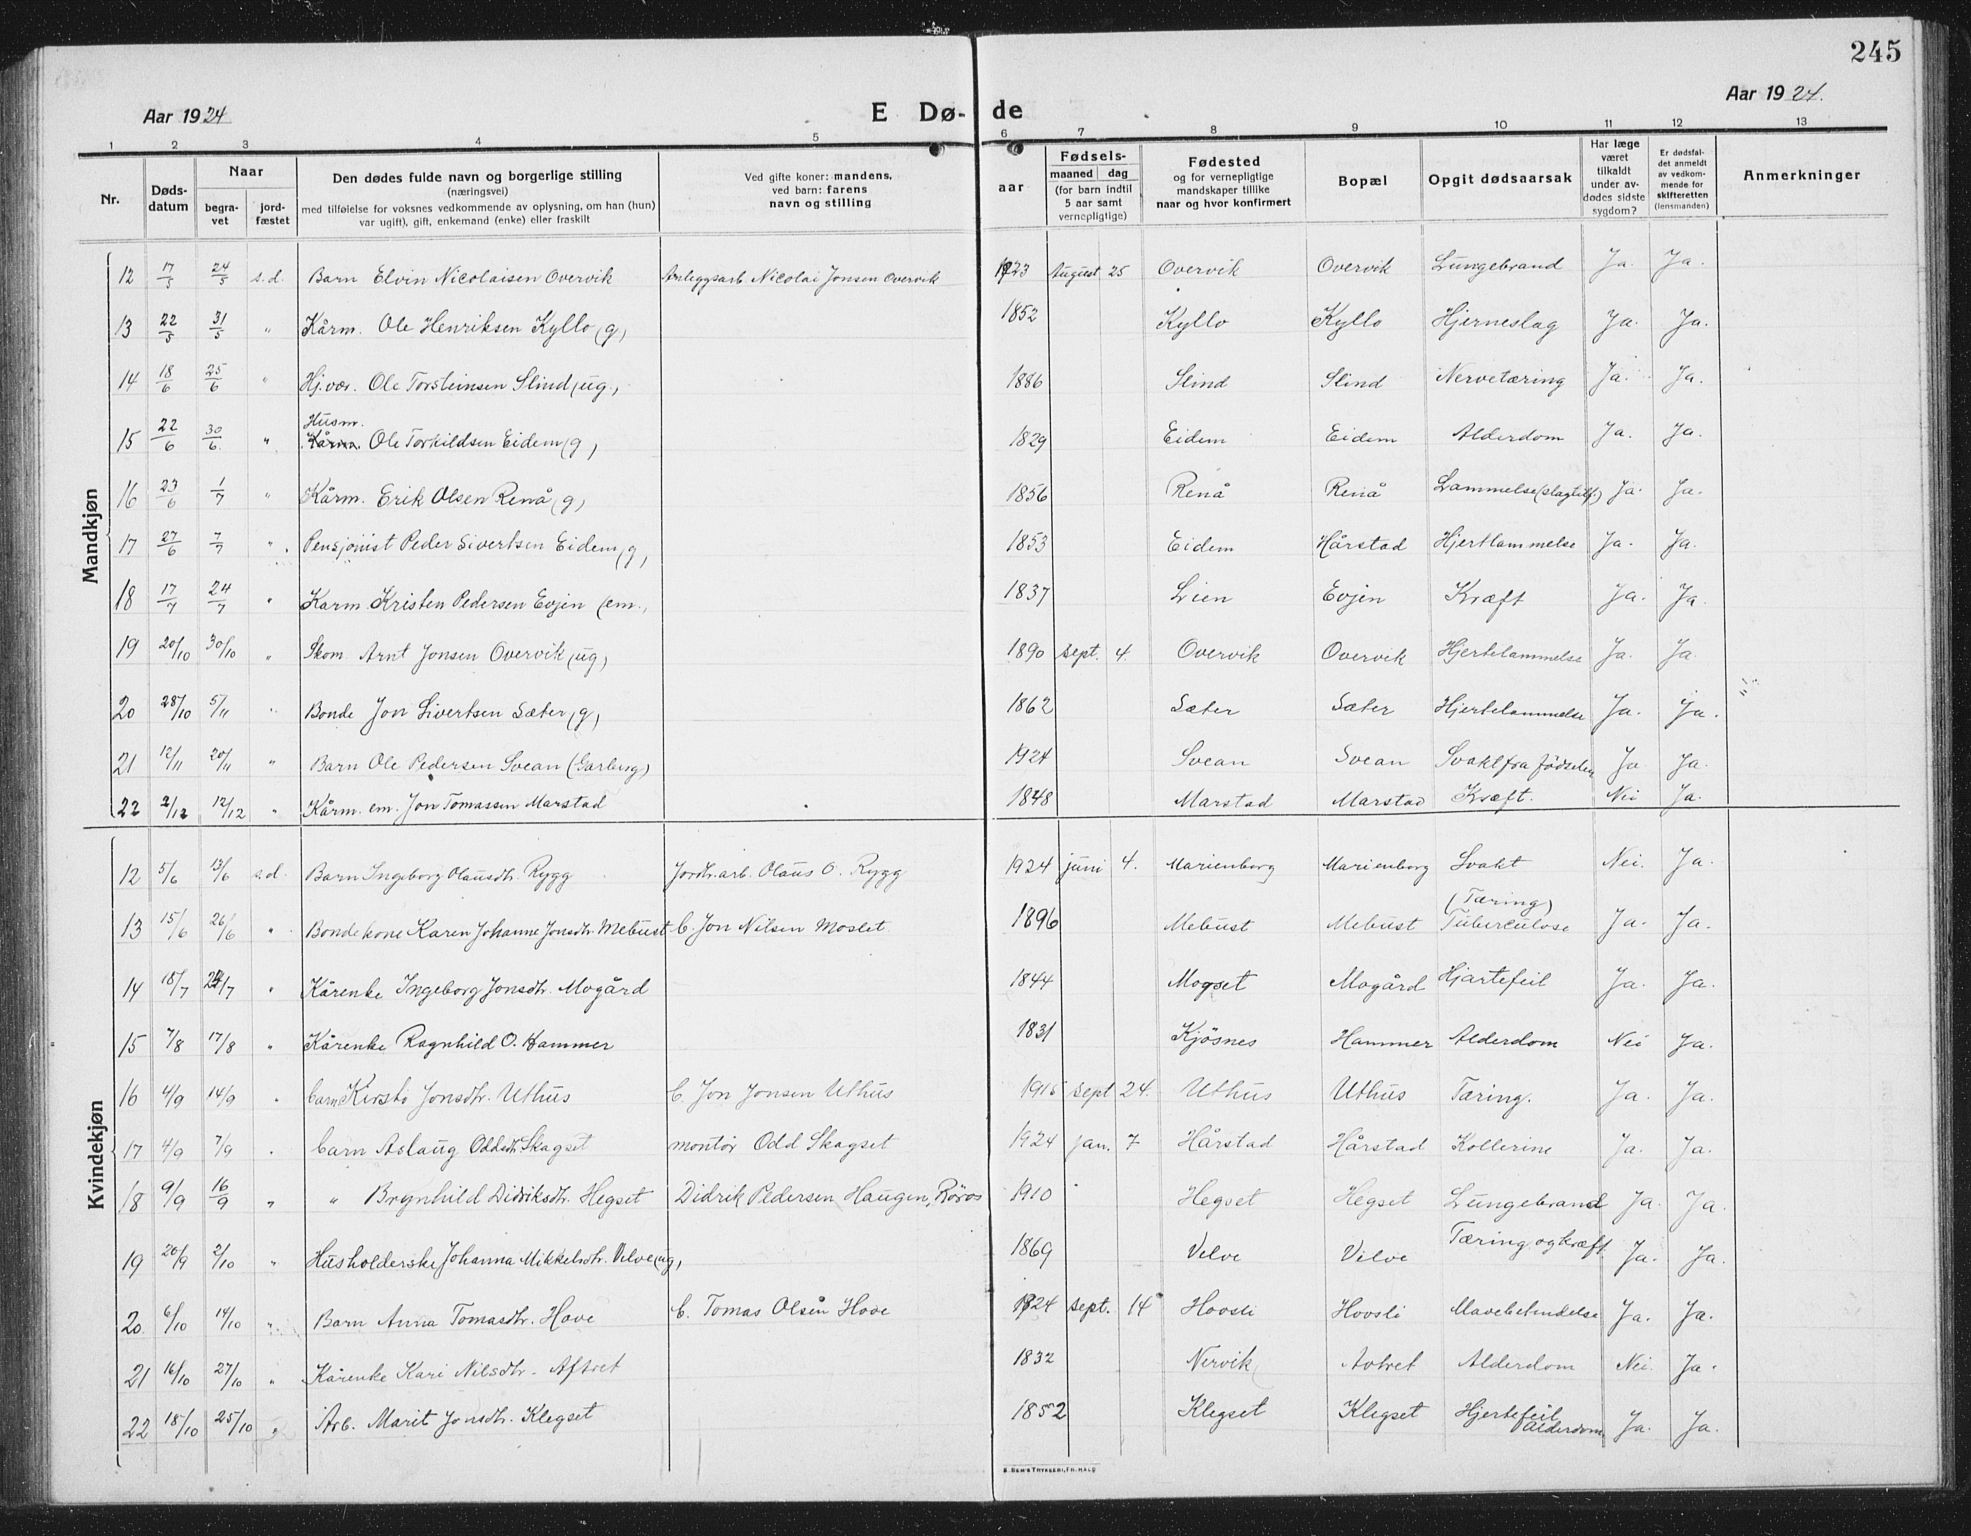 245
Aar 1924
E Dø- de
Aar 1924.
1 2 3 4 5 6 7 8 9 10 11 12 13
Nr.
Døds-datum
Naar
begra-vet
jord-fæstet
Den dødes fulde navn og borgerlige stilling
(næringsvei)
med tilføielse for voksnes vedkommende av oplysning, om han (hun)
var ugift), gift, enkemand (enke) eller fraskilt
Ved gifte koner: mandens,
ved barn: farens
navn og stilling
aar
Fødsels-
maaned dag
(for barn indtil
5 aar samt
vernepligtige)
Fødested
og for vernepligtige
mandskaper tillike
naar og hvor konfirmert
Bopæl
Opgit dødsaarsak
Har læge
været
tilkaldt
under av-
dødes sidste
sygdom?
Er dødsfal-
det anmeldt
av vedkom-
mende for
skifteretten
(lensmanden)
Anmerkninger
Mandkjøn
12 17/5 24/5 s.d. Barn Elvin Nicolaisen Overvik Anleggsarb Nicolai Jonsen Overvik 1923 August 25 Overvik Overvik Lungebrand Ja. Ja.
13 22/5 31/5 " Kårm. Ole Henriksen Kyllo (g) 1852 Kyllo Kyllo Hjerneslag Ja. Ja.
14 18/6 25/6 " Hj.vær. Ole Torsteinsen Slind (ug, 1886 Slind Slind Nervetæring Ja. Ja.
Husm.
15 22/6 30/6 " Kårm. Ole Torkildsen Eidem (g) 1829 Eidem Eidem Alderdom Ja. Ja.
16 23/6 1/7 " Kårm. Erik Olsen Renå (g) 1856 Renå Renå Lammelse (slagtilf.) Ja. Ja.
17 27/6 7/7 " Pensjonist Peder Sivertsen Eidem (g, 1853 Eidem Hårstad Hjertlammelse Ja. Ja.
18 17/7 24/7 " Karm. Kristen Pedersen Evjen (em., 1837 Lien Evjen Kræft Ja. Ja.
19 20/10 30/10 " Skom. Arnt Jonsen Overvik (ug) 1890 Sept. 4. Overvik Overvik Hjertelammelse Ja. Ja.
20 28/10 5/11 " Bonde Jon Sivertsen Sæter (g) 1862 Sæter Sæter Hjertelammelse Ja. Ja.
21 12/11 20/11 " Barn Ole Pedersen Svean (Garberg) 1924 Svean Svean Svakt fra fødselen Ja Ja.
22 2/12 12/12 " Kårm. em. Jon Tomassen Marstad 1848 Marstad Marstad Kræft. Nei Ja.
Kvindekjøn
12 5/6 13/6 s.d. Barn Ingeborg Olausdtr. Rygg Jordtr.arb. Olaus O. Rygg 1924 juni 4. Marienborg Marienborg Svakt Nei. Ja.
(Tæring)
13 15/6 26/6 " Bondekone Karen Johanne Jonsdtr. Mebust G. Jon Nilsen Moslet 1896 Mebust Mebust Tuberculose Ja. Ja.
14 18/7 24/7 " Kårenke Ingeborg Jonsdtr. Mogård 1844 Mogset Mogård Hjartefeil Ja. Ja.
15 7/8 17/8 " Kårenke Ragnhild O. Hammer 1831 Kjøsnes Hammer Alderdom Nei Ja.
16 4/9 14/9 " barn Kirsti Jonsdtr. Uthus G. Jon Jonsen Uthus 1915 sept 24. Uthus Uthus Tæring. Ja. Ja.
17 4/9 7/9 " barn Aslaug Oddsdtr. Skagset montør Odd Skagset 1924 jan. 7 Hårstad Hårstad Kollerine Ja. Ja.
18 9/9 16/9 " " Brynhild Didriksdtr. Hegset Didrik Pedersen Haugen, Røros 1910 Hegset Hegset Lungebrand Ja. Ja.
19 20/9 2/10 " Husholderske Johanna Mikkelsdtr. Velve (ug, 1869 Velve Velve Tæring og kræft Ja. Ja.
20. 6/10 14/10 " Barn Anna Tomasdtr. Hove G. Tomas Olsen Hove 1924 sept. 14 Hovsli Hovsli Mavebetendelse Ja. Ja.
21 16/10 27/10 " Kårenke Kari Nilsdtr. Aftret 1832 Nervik Avtret Alderdom Nei. Ja.
22 18/10 25/10 " Arb. Marit Jonsdtr. Klegset 1852 Klegset Klegset Hjertefeil Alderdom Ja. Ja.
E. SEM'S TRYKKERI, FR.HALD